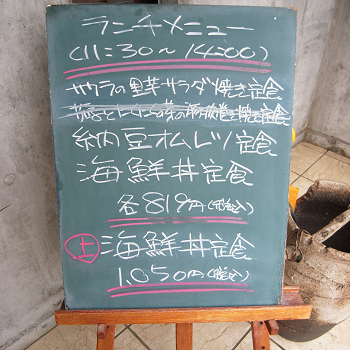 ランチメニュー
(11:30〜14:00)
サワラの里芋サラダ焼き定食
納豆オムレツ定食
海鮮丼定食
各819円(税込)
上 海鮮丼定食
1,050円(税込)